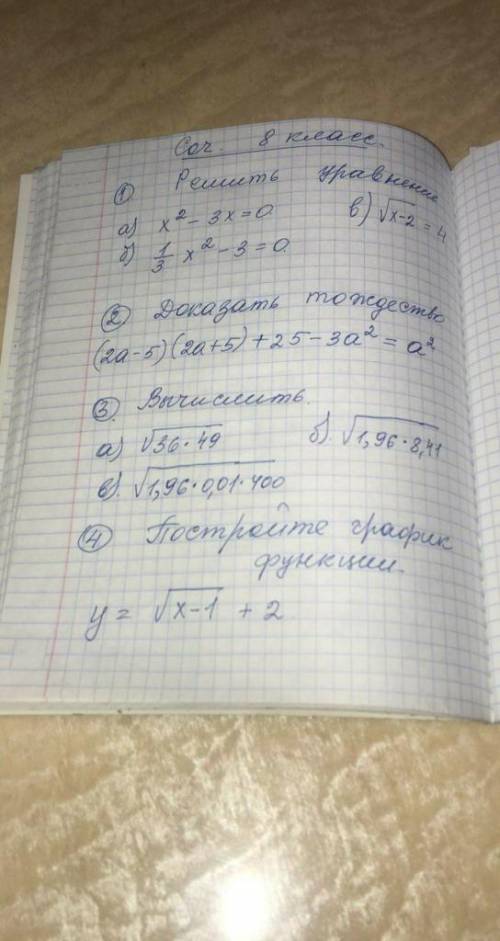 Соч. 8 класс.
① Решить уравнение
а) x² - 3x = 0 в) √x-2 = 4
б) 1/3 x² - 3 = 0
② Доказать тождество
(2a-5)(2a+5) + 25 - 3a² = a²
③ Вычислить.
а) √36·49 б). √1,96·8,41
в). √1,96·0,01·400
④ Постройте график
функции.
y = √x-1 + 2